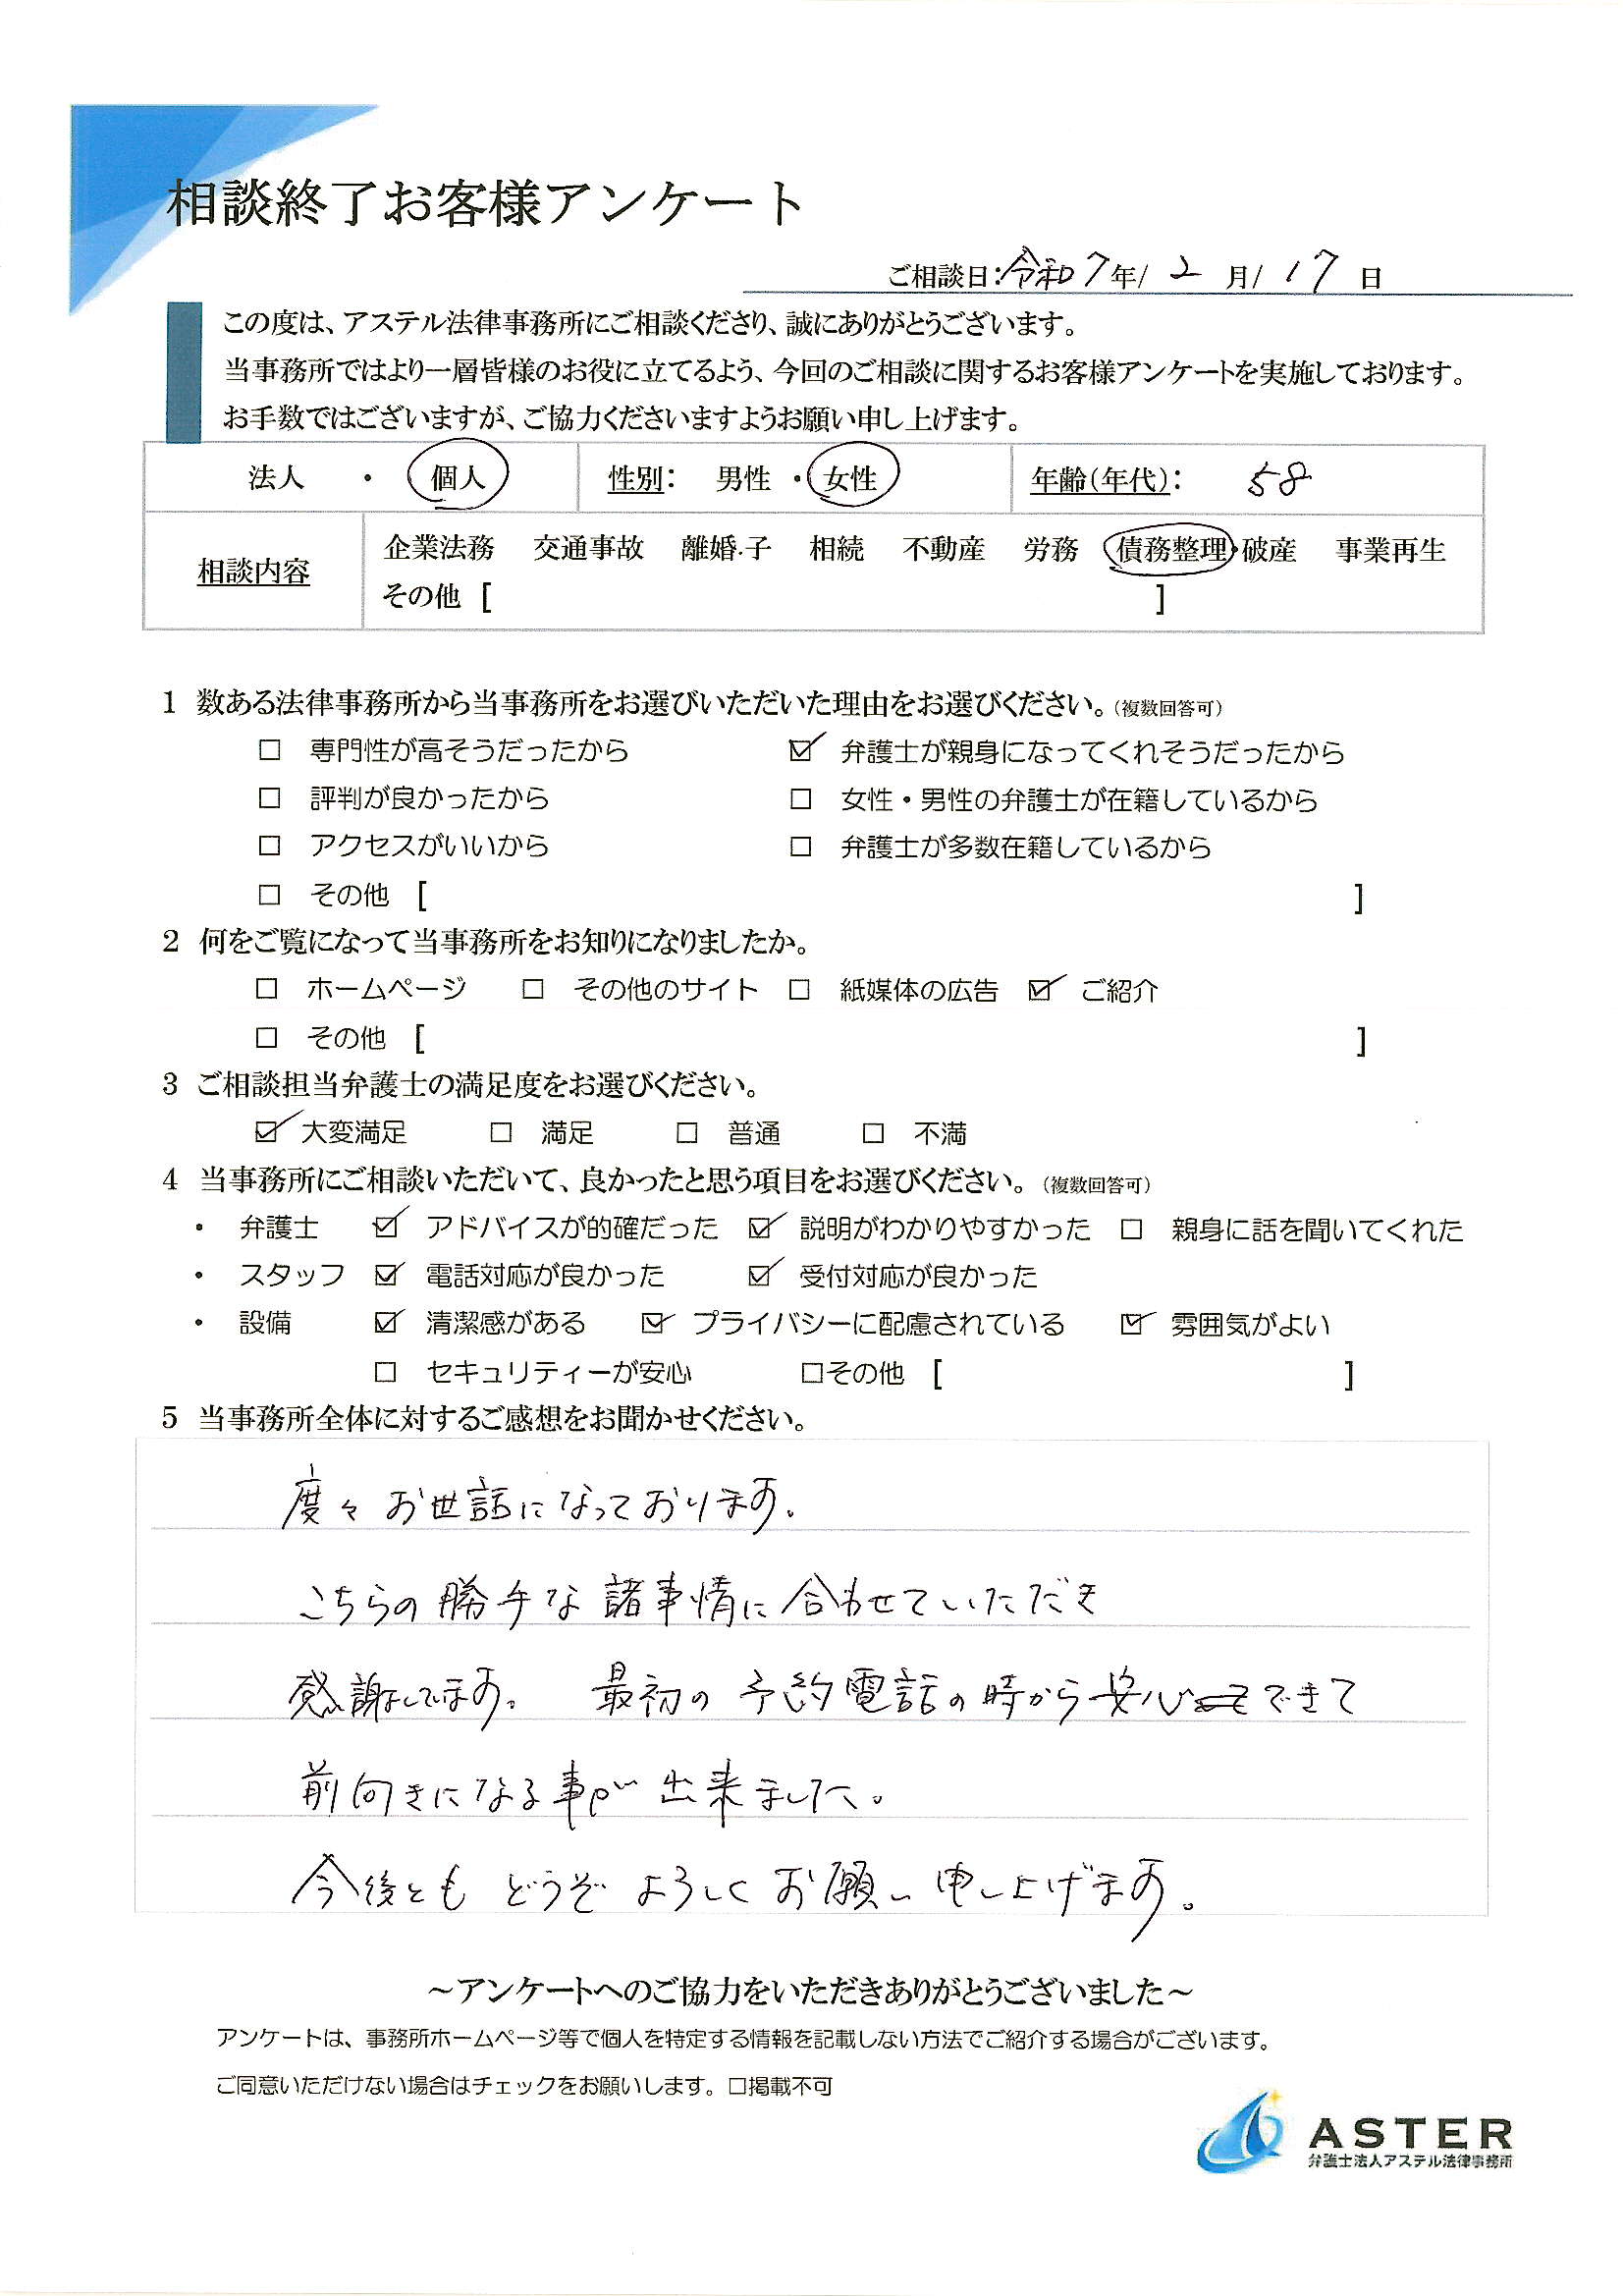 相談終了お客様アンケート
ご相談日:令和7年/2月/17日
この度は、アステル法律事務所にご相談くださり、誠にありがとうございます。
当事務所ではより一層皆様のお役に立てるよう、今回のご相談に関するお客様アンケートを実施しております。
お手数ではございますが、ご協力くださいますようお願い申し上げます。
法人 ・ 個人 性別: 男性 ・ 女性 年齢(年代): 58
相談内容 企業法務 交通事故 離婚・子 相続 不動産 労務 債務整理・破産 事業再生
その他 [ ]
1 数ある法律事務所から当事務所をお選びいただいた理由をお選びください。(複数回答可)
□ 専門性が高そうだったから ☑ 弁護士が親身になってくれそうだったから
□ 評判が良かったから □ 女性・男性の弁護士が在籍しているから
□ アクセスがいいから □ 弁護士が多数在籍しているから
□ その他 [ ]
2 何をご覧になって当事務所をお知りになりましたか。
□ ホームページ □ その他のサイト □ 紙媒体の広告 ☑ ご紹介
□ その他 [ ]
3 ご相談担当弁護士の満足度をお選びください。
☑ 大変満足 □ 満足 □ 普通 □ 不満
4 当事務所にご相談いただいて、良かったと思う項目をお選びください。(複数回答可)
・ 弁護士 ☑ アドバイスが的確だった ☑ 説明がわかりやすかった □ 親身に話を聞いてくれた
・ スタッフ ☑ 電話対応が良かった ☑ 受付対応が良かった
・ 設備 ☑ 清潔感がある ☑ プライバシーに配慮されている ☑ 雰囲気がよい
□ セキュリティーが安心 □その他 [ ]
5 当事務所全体に対するご感想をお聞かせください。
度々お世話になっております。
こちらの勝手な諸事情に合わせていただき
感謝してます。 最初の予約電話の時から安心できて
前向きになる事が出来ました。
今後ともどうぞよろしくお願い申し上げます。
～アンケートへのご協力をいただきありがとうございました～
アンケートは、事務所ホームページ等で個人を特定する情報を記載しない方法でご紹介する場合がございます。
ご同意いただけない場合はチェックをお願いします。□掲載不可
ASTER
弁護士法人アステル法律事務所